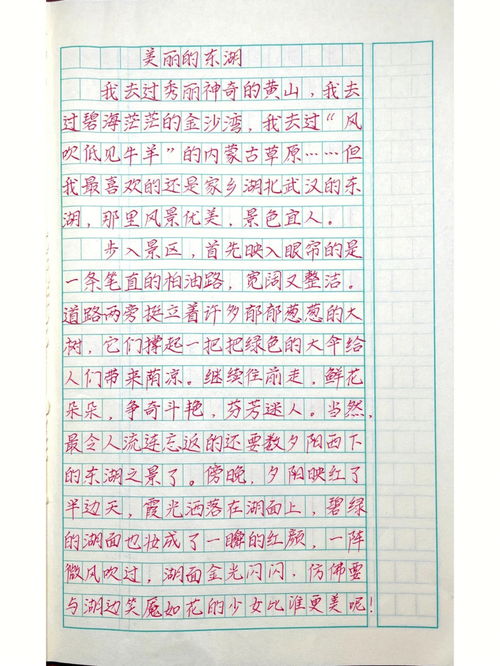 美丽的东湖
我去过秀丽神奇的黄山，我去
过碧海茫茫的金沙湾，我去过“风
吹低见牛羊”的内蒙古草原……但
我最喜欢的还是家乡湖北武汉的东
湖，那里风景优美，景色宜人。
步入景区，首先映入眼帘的是
一条笔直的柏油路，宽阔又整洁。
道路两旁挺立着许多郁郁葱葱的大
树，它们撑起一把把绿色的大伞给
人们带来荫凉。继续往前走，鲜花
朵朵，争奇斗艳，芬芳迷人。当然，
最令人流连忘返的还要数夕阳西下
的东湖之景了。傍晚，夕阳映红了
半边天，霞光洒落在湖面上，碧绿
的湖面也妆成了一瞬的红颜，一阵
微风吹过，湖面金光闪闪，仿佛要
与湖边笑靥如花的少女比谁更美呢！